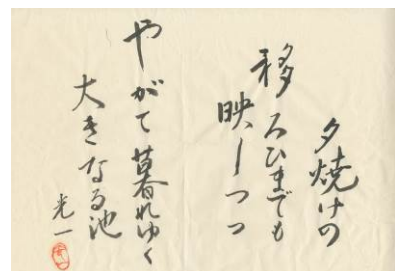 夕焼けの
移ろひまでも
映しつつ
やがて暮れゆく
大きなる池
光一